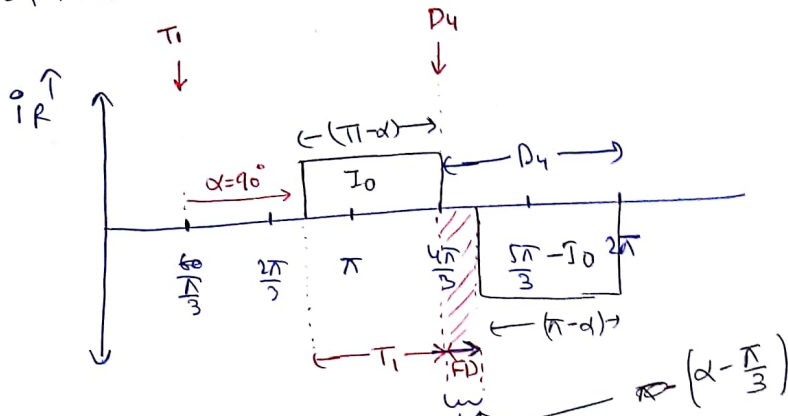 T1
D4
iR
←(π-α)→
← D4 →
α=90°
I0
60
π/3
2π/3
π
4π/3
5π/3
-I0
2π
←(π-α)→
← T1 →
FD
(α - π/3)